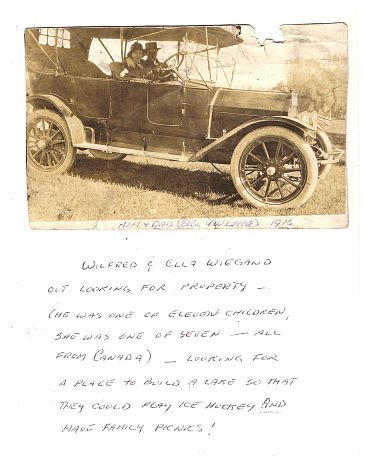 MOM & DAD (ELLA & WILFRED) 1916
WILFRED & ELLA WIEGAND
OUT LOOKING FOR PROPERTY —
(HE WAS ONE OF ELEVEN CHILDREN,
SHE WAS ONE OF SEVEN — ALL
FROM CANADA) — LOOKING FOR
A PLACE TO BUILD A LAKE SO THAT
THEY COULD PLAY ICE HOCKEY AND
HAVE FAMILY PICNICS!